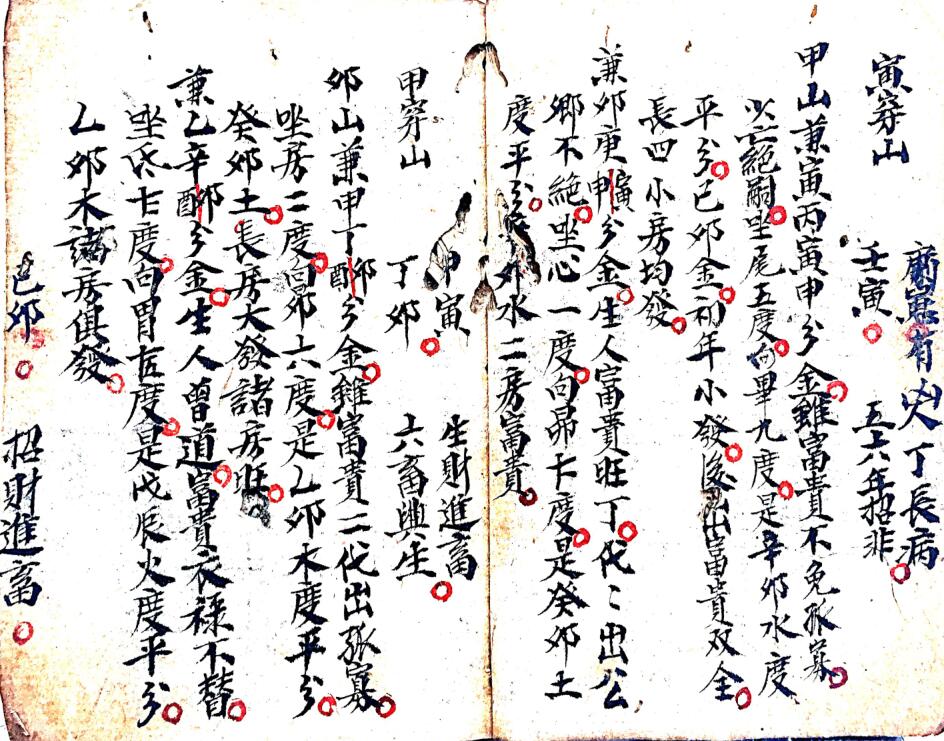 寅穿山
壬寅 五六年招非
有凶火丁長病
甲山兼寅丙寅申分金雖富貴不免孤寡
以亡絕嗣坐尾五度向畢九度是辛卯水度
平分己卯金初年小發後出富貴双全
長四小房均發
兼卯庚申寅分金生人富貴旺丁代〻出公
鄉不絕坐心一度向昴七度是癸卯土
度平分癸卯水二房富貴
甲穿山
甲寅 生財進畜
丁卯 六畜興生
卯山兼甲丁酉卯分金雖富貴二代出孤寡
坐房二度向昴六度是乙卯木度平分
癸卯土長房大發諸房旺
兼乙辛酉卯分金生人曾道富貴衣祿不替
坐氐七度向胃五度是戊辰火度平分
乙卯木諸房俱發
己卯 招財進畜